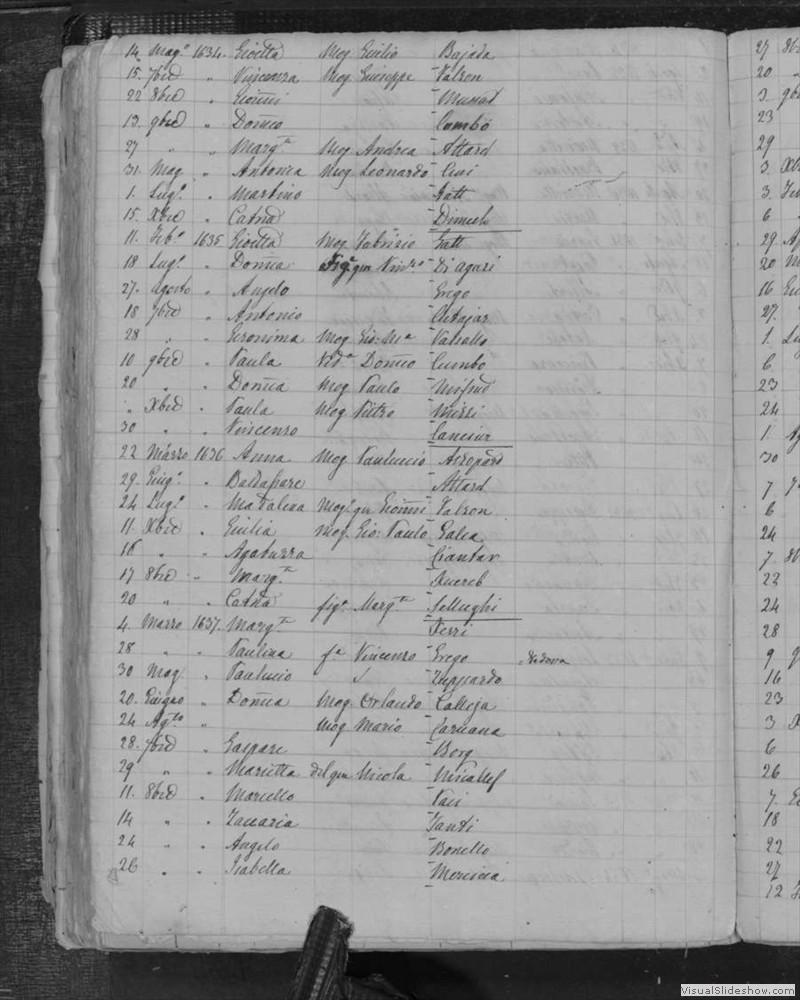 14. Mag.o 1634. Gioetta Mog Giulio Bajada
15. 7bre " Vincenza Mog Giuseppe Falzon
22 8bre " Gioñni Muscat
13. 9bre " Domco Cumbo
27 " " Marg.ta Mog Andrea Attard
31. Mag " Antonia Mog Leonardo
1. Lug.o " Martino Gatt
15. Xbre " Catna Dimech
11. Feb.o 1635 Gioetta Mog Fabrizio Gatt
18 Lug.o " Domca Di Agari
27. Agosto " Angelo Grego
18 7bre " Antonio Axiar
28 " " Geronima Mog Gio: Ma Vassallo
10 9bre " Paula Ved.a Domco Cumbo
20 " " Domca Mog Paulo Mifsud
" Xbre " Paula Mog Pietro Mizzi
30 " " Vincenzo
22 Marzo 1636 Anna Mog Pauluccio
29. Giug.o " Baldasare Attard
24 Lug.o " Madalena Mog.e qm Gioñni Falzon
11. Xbre " Giulia Mog. Gio: Paulo Galea
16 " " Agatuzza Ciantar
17 8bre " Marg.ta Xuereb
20 " " Catna fig.a Marg.ta
4. Marzo 1637. Marg.ta Ferri
28 " " Paulina f.a Vincenzo Grego
30 Mag " Pauluccio Zuppardo
20. Giugno " Domca Mog. Orlando Calleja
24 Ag.to " Mog Mario Caruana
28. 7bre " Gaspare Borg
29 " " Marietta del qm Nicola Micallef
11. 8bre " Marcello Paci
14 " " Zaccaria Xanti
24 " " Angelo Bonello
26 " " Isabella
27 8b
20 "
3 9b
23
29
3. Xb
3.
6
29. A
20 M
16
27.
1. L
6
23
24
1.
30
7
6
24
7. 8b
22
24
28
9
16
23
3 X
6
26
7.
18
22
27
12
VisualSlideshow.com